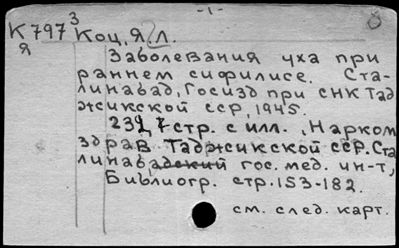 -1-
К 797³ Коц, Я. Л.
Я
Заболевания уха при
раннем сифилисе. Ста-
линабад, Госизд при СНК Тад
жикской ССР, 1945.
стр. с илл., Нарком
здрав Таджикской ССР. Ста
линабадский гос. мед. ин-т,
Библиогр. стр. 153-182.
см. след. карт.